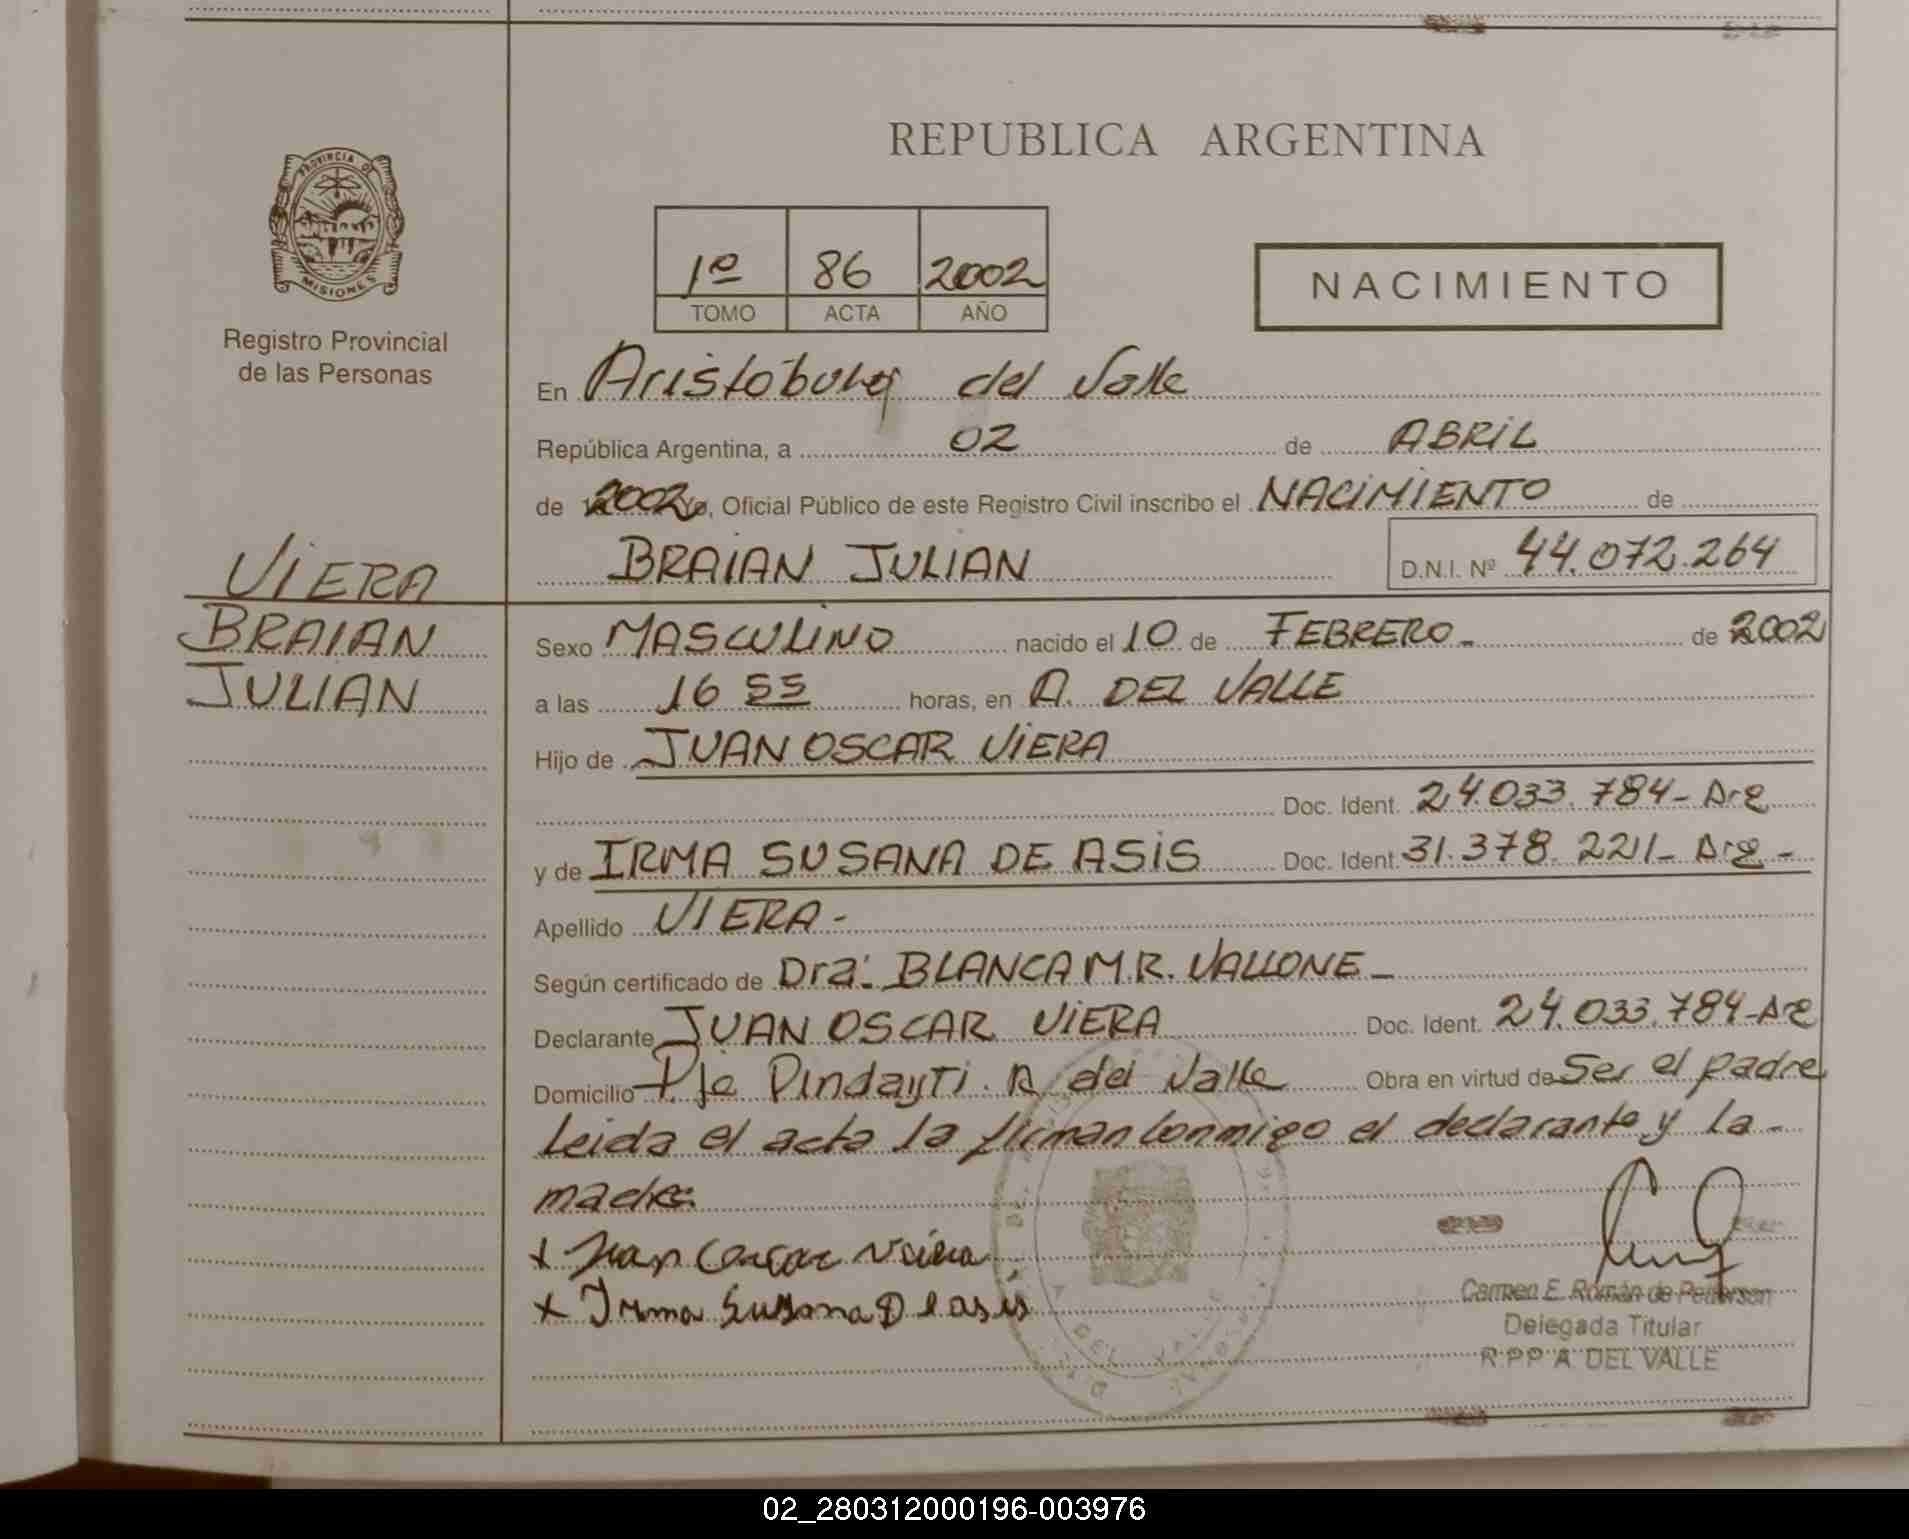 REPUBLICA ARGENTINA
PROVINCIA DE
MISIONES
Registro Provincial
de las Personas
1º 86 2002
TOMO ACTA AÑO
NACIMIENTO
En Aristóbulo del Valle
República Argentina, a 02 de ABRIL
de 2002 Yo, Oficial Público de este Registro Civil inscribo el NACIMIENTO de
BRAIAN JULIAN D.N.I. Nº 44.072.264
VIERA
BRAIAN
JULIAN
Sexo MASCULINO nacido el 10 de FEBRERO - de 2002
a las 16 55 horas, en A. DEL VALLE
Hijo de JUAN OSCAR VIERA
Doc. Ident. 24.033.784- Arg
y de IRMA SUSANA DE ASIS Doc. Ident. 31.378.221- Arg -
Apellido VIERA -
Según certificado de Dra: BLANCA M.R. VALLONE -
Declarante JUAN OSCAR VIERA Doc. Ident. 24.033.784-Arg
Domicilio Pje Pindayti. A del Valle Obra en virtud de Ser el padre
Leida el acta la firman conmigo el declarante y la -
madre.
x Juan Oscar Vieira
x Irma Susana D easis
DEL VALLE
Carmen E. Román de Pederson
Delegada Titular
R.P.P A. DEL VALLE
02_280312000196-003976